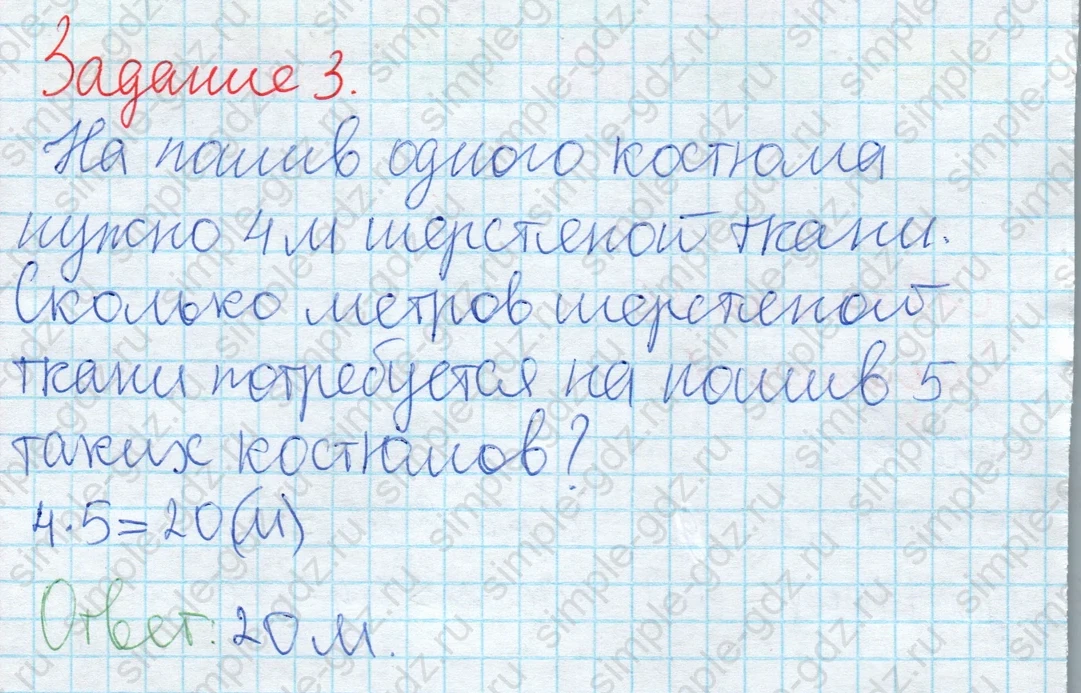 Задание 3.
На пошив одного костюма
нужно 4 м шерстяной ткани.
Сколько метров шерстяной
ткани потребуется на пошив 5
таких костюмов?
4·5=20(м)
Ответ: 20 м.
simple-gdz.ru